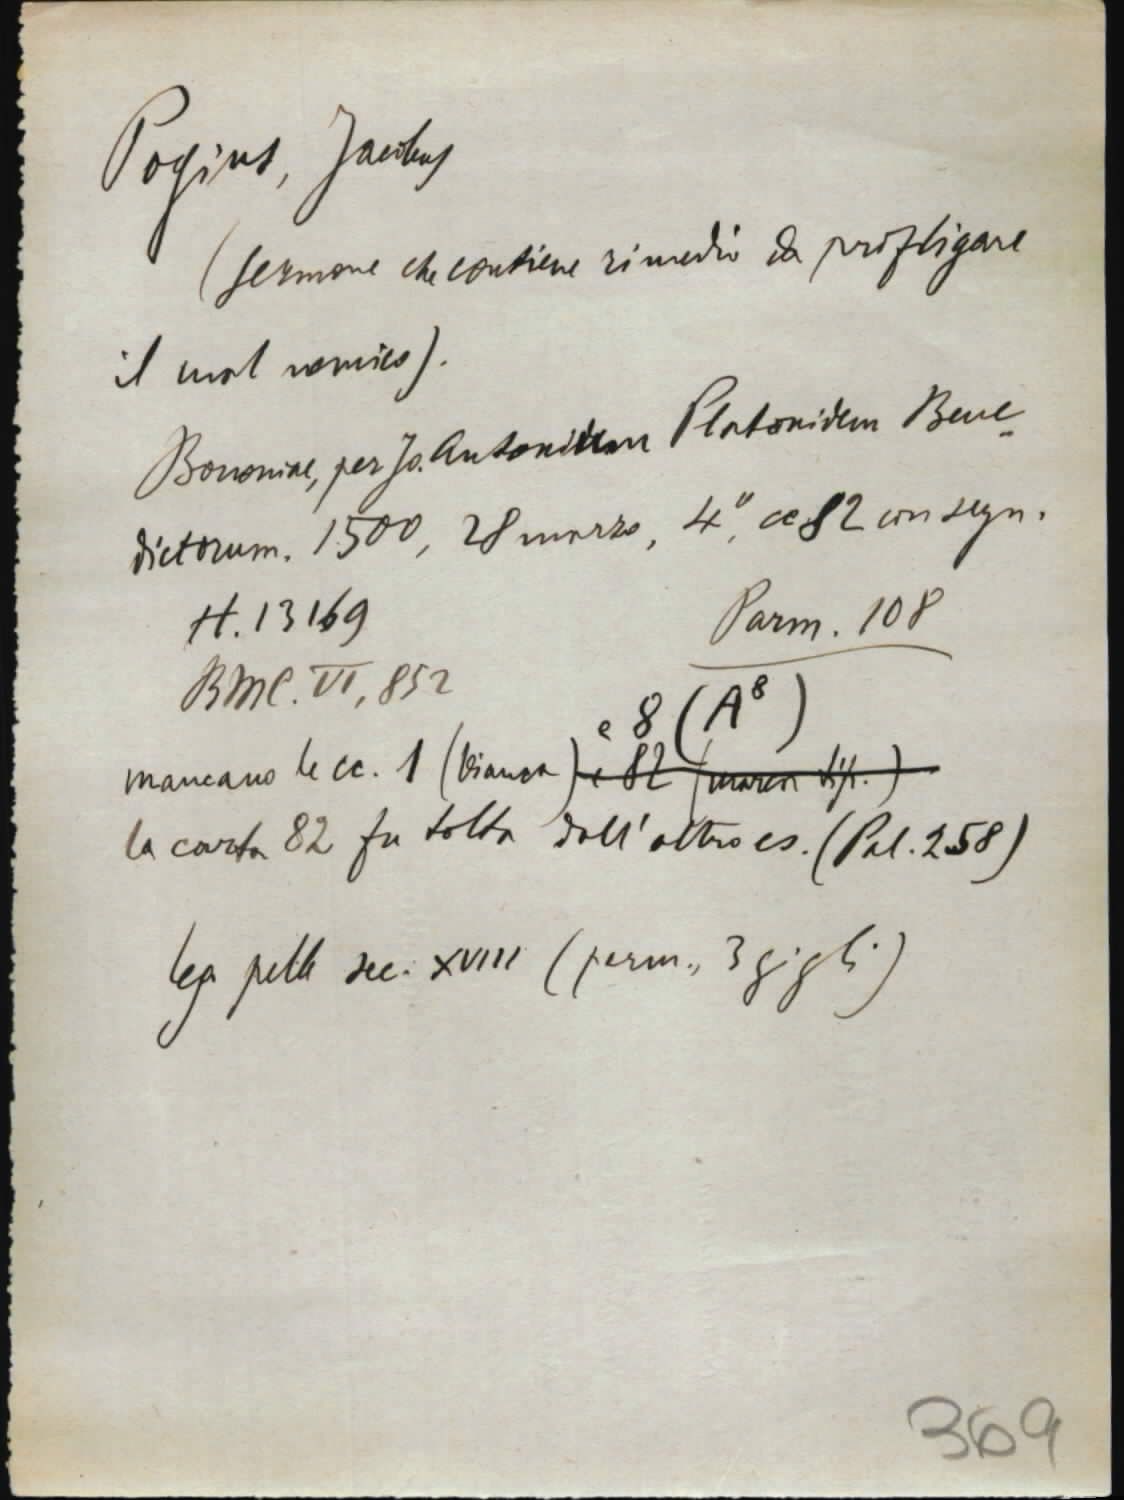 Pogius, Jacobus
(sermone che contiene rimedio da profligare
il mal nemico).
Bononiae, per Jo. Antonium Platonidem Bene-
dictorum. 1500, 28 marzo, 4°, cc 82 con segn.
H. 13169
Parm. 108
BMC. VI, 852
e 8 (A8)
mancano le cc. 1 (bianca) e 82 (marca tip.)
la carta 82 fu tolta dall'altro es. (Pal. 258)
leg pelle sec. XVIII (parm., 3 gigli)
369